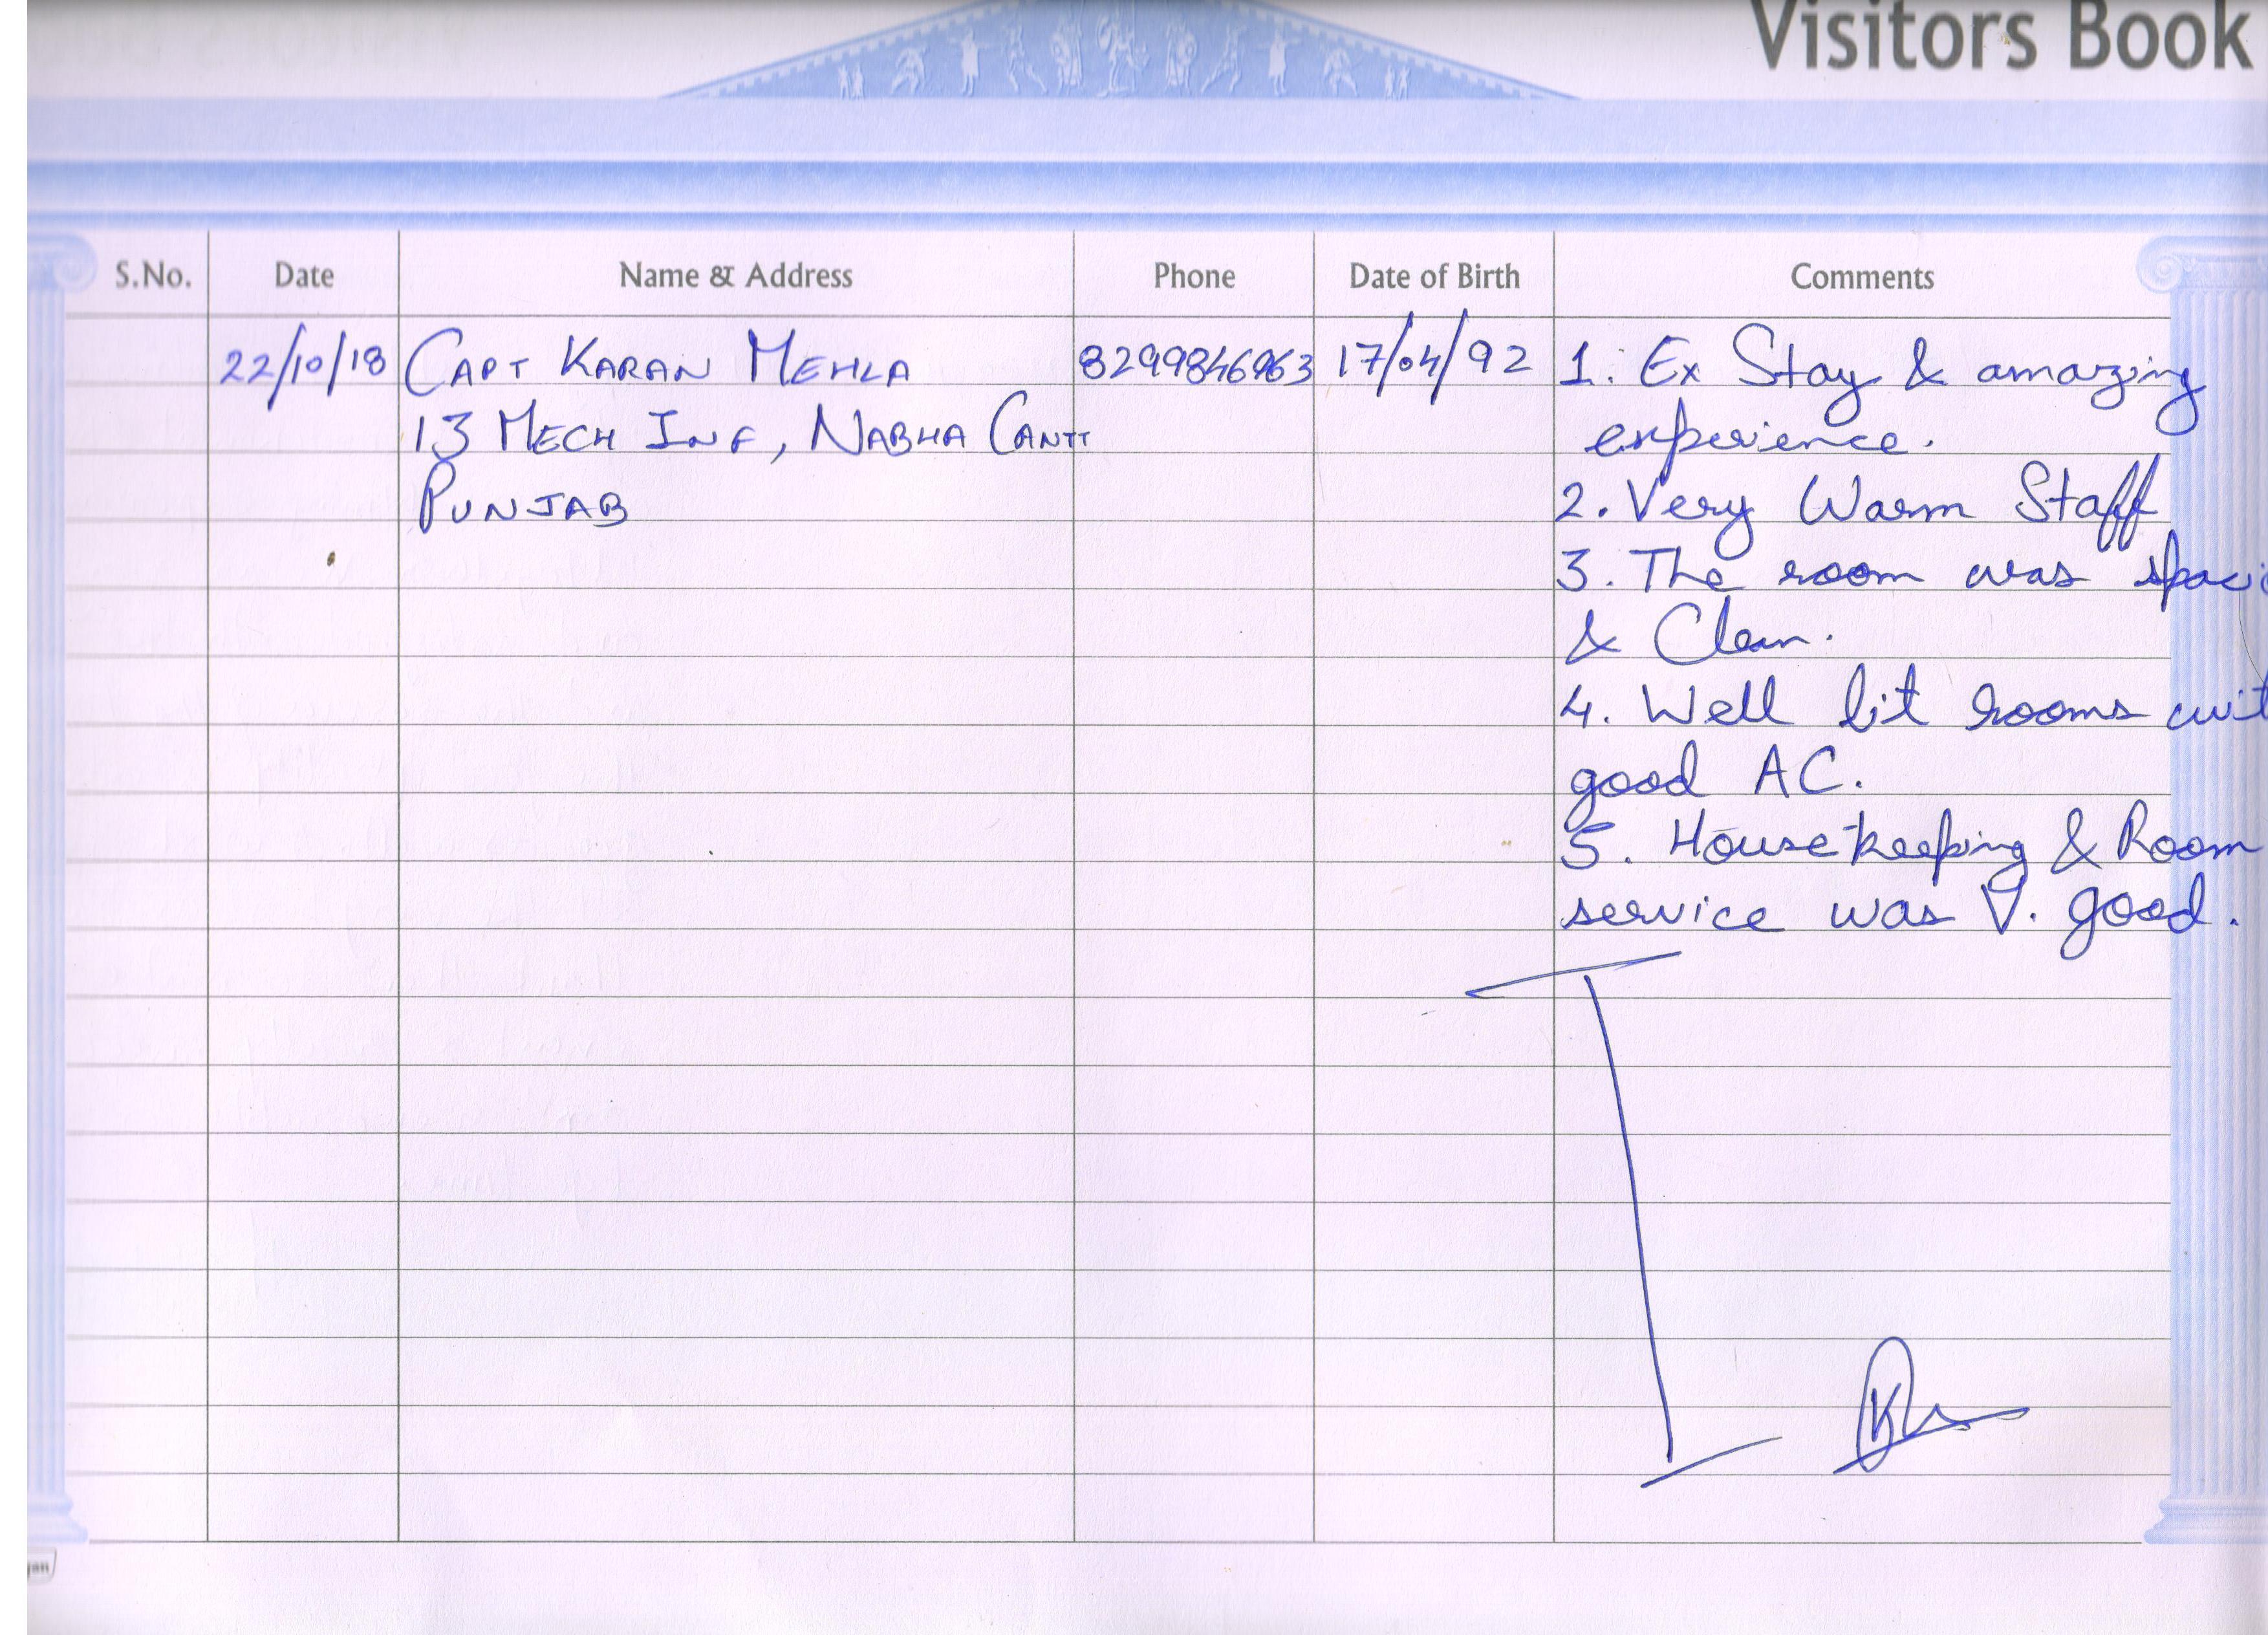 Visitors Book
S.No. Date Name & Address Phone Date of Birth Comments
22/10/18 CAPT KARAN MEHLA 8299846963 17/04/92 1. Ex Stay & amazing
13 MECH INF, NABHA CANTT experience.
PUNJAB 2. Very Warm Staff
3. The room was spaci
& Clean.
4. Well lit rooms wit
good AC.
5. Housekeeping & Room
service was V. good.